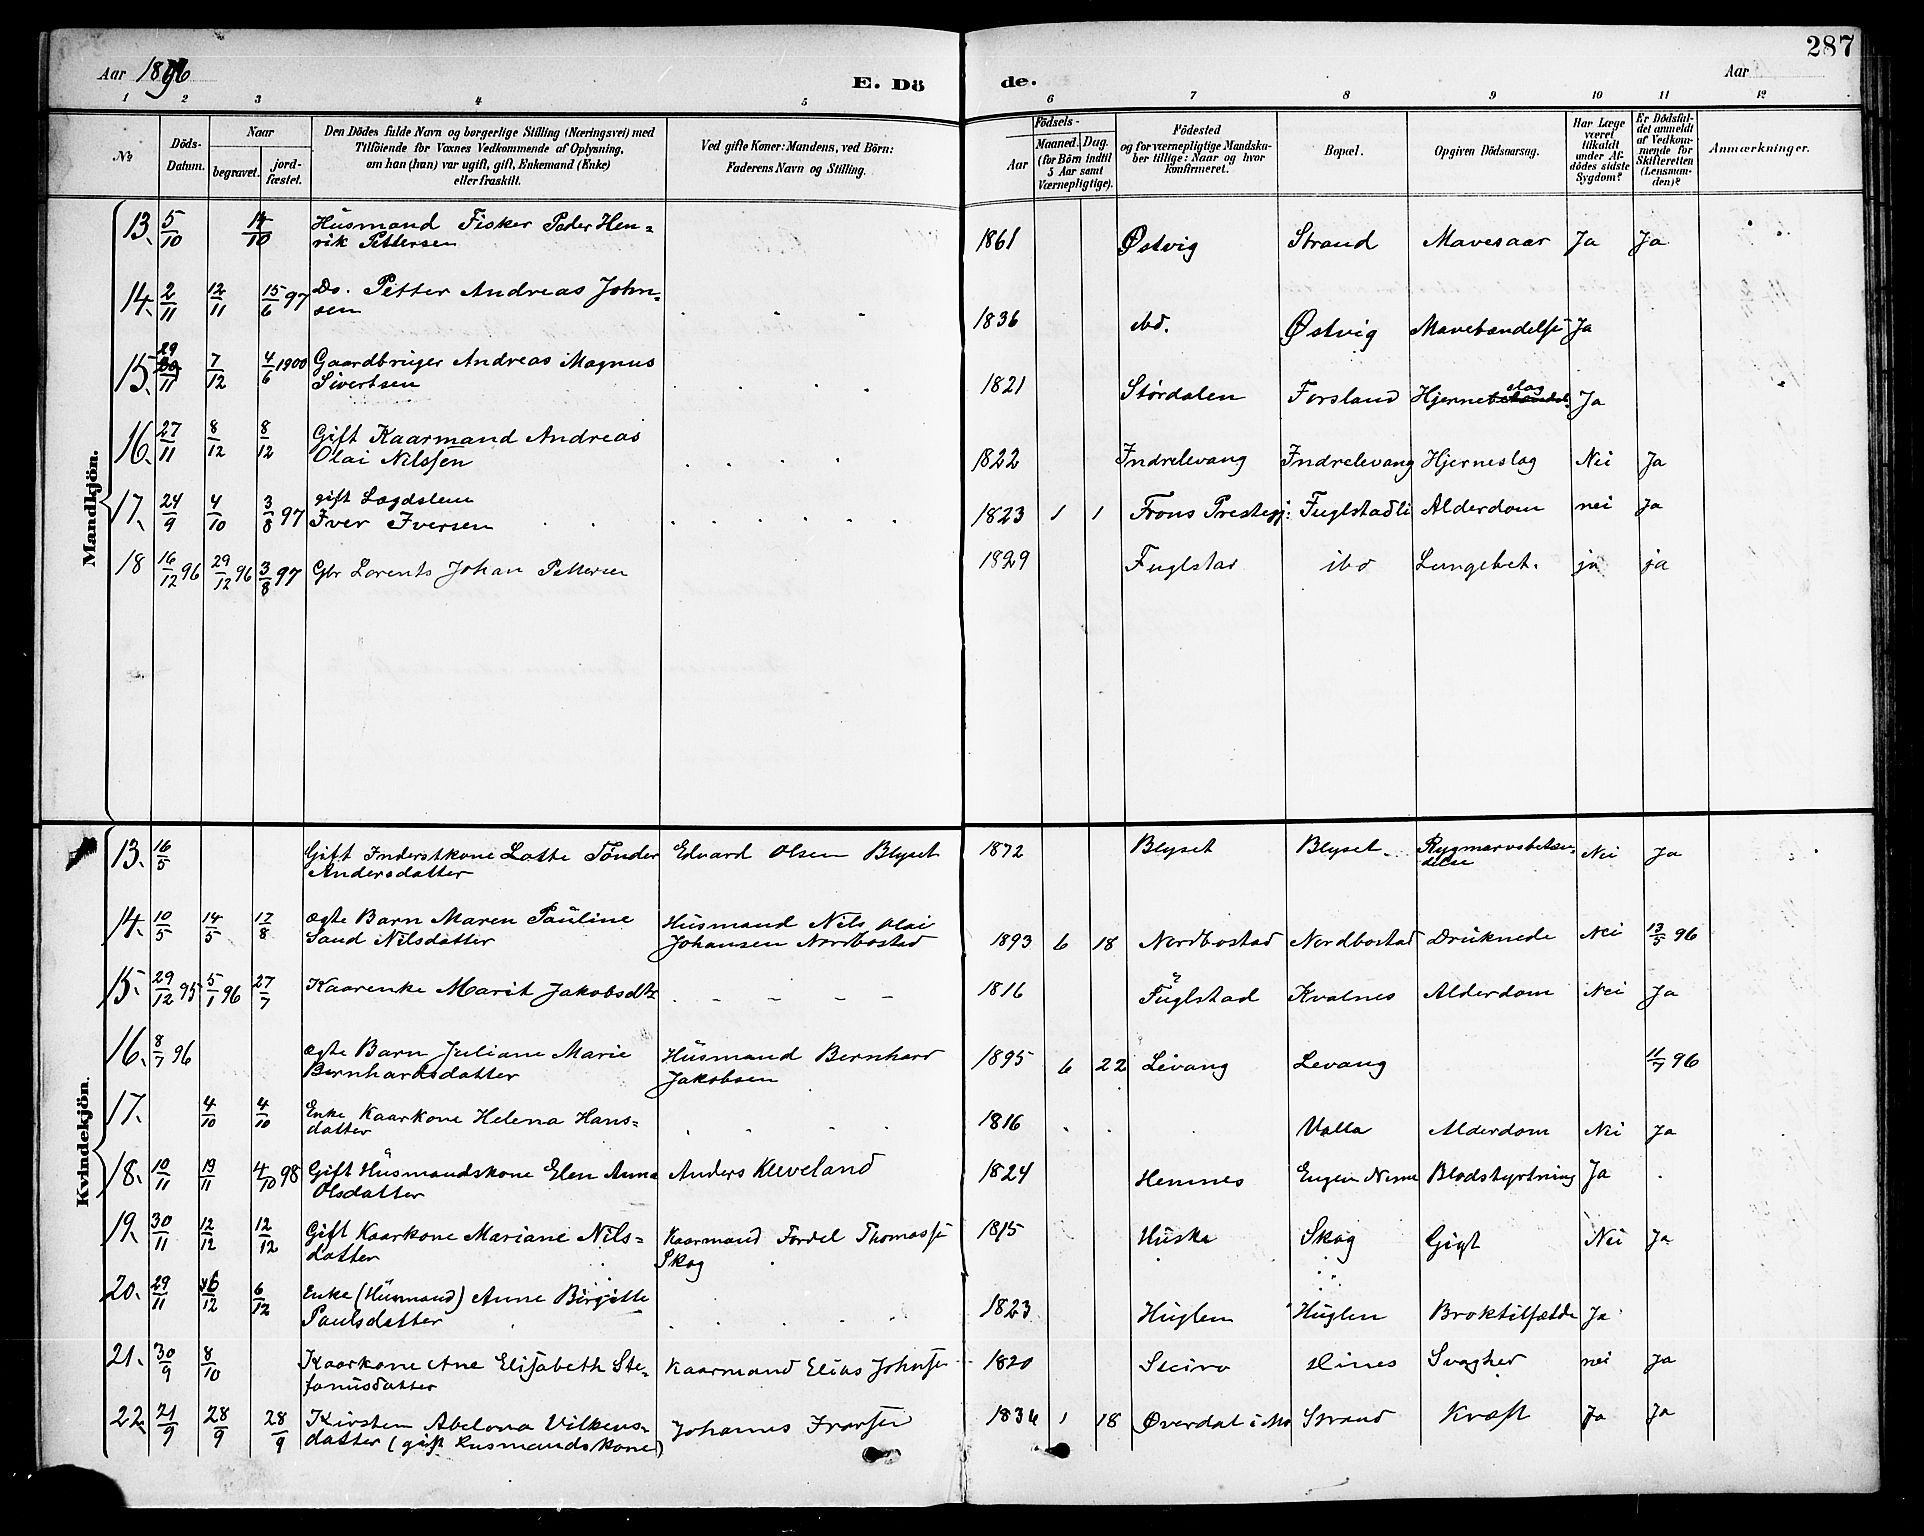 287
Aar 1896
E. Dö
de.
Aar
1 2 3 4 5 6 7 8 9 10 11 12
No
Döds-Datum.
Naar
begravet.
jord-fæstet.
Den Dödes fulde Navn og borgerlige Stilling (Næringsvei) med
Tilföiende for Voxnes Vedkommende af Oplysning,
om han (hun) var ugift, gift, Enkemand (Enke)
eller fraskilt.
Ved gifte Koner: Mandens, ved Börn:
Faderens Navn og Stilling.
Födsels-
Aar
Maaned. Dag.
(for Börn indtil
5 Aar samt
Værnepligtige).
Födested
og for værnepligtige Mandska-
ber tillige: Naar og hvor
konfirmeret.
Bopæl.
Opgiven Dödsaarsag.
Har Læge
været
tilkaldt
under Af-
dödes sidste
Sygdom?
Er Dödsfal-
det anmeldt
af Vedkom-
mende for
Skifteretten
(Lensman-
den)?
Anmærkninger.
Mandkjön.
13. 5/10 14/10 Husmand Fisker Peder Hen=
rik Pettersen 1861 Østvig Strand Mavesaar Ja Ja
14. 2/11 12/11 15/6 97 Do. Petter Andreas John=
sen 1836 ibd. Østvig Mavebændelse Ja
15. 29/11 7/12 4/6 1900 Gaardbruger Andreas Magnus
Sivertsen 1821 Størdalen Forsland Hjerneslag Ja
16. 27/11 8/12 8/12 Gift Kaarmand Andreas
Olai Nilssen 1822 Indrelevang Indrelevang Hjerneslag Nei Ja
17. 24/9 4/10 3/8 97 gift Lægdslem
Iver Iversen 1823 1 1 Frons Prestegj: Fuglstadli Alderdom nei Ja
18 16/12 96 29/12 96 3/8 97 Gbr Lorents Johan Pettersen 1829 Fuglstad ibd Lungebet. ja ja
Kvindekjön.
13. 16/5 Gift Inderstkone Lotte Tønder
Andersdatter Edvard Olsen Blyset 1872 Blyset Blyset Rygmarvsbetæn-
delse Nei Ja
14. 10/5 14/5 17/8 ægte Barn Maren Pauline
Sand Nilsdatter Husmand Nils Olai
Johansen Nordbostad 1893 6 18 Nordbostad Nordbostad Druknede Nei 13/5 96
15. 29/12 95 5/1 96 27/7 Kaarenke Marit Jakobsdtr 1816 Fuglstad Kvalnes Alderdom Nei Ja
16. 8/7 96 ægte Barn Juliane Marie
Bernhardsdatter Husmand Bernhard
Jakobsen 1895 6 22 Levang Levang 11/7 96
17. 4/10 4/10 Enke Kaarkone Helena Hans=
datter 1816 Valla Alderdom Nei Ja
18. 10/11 19/11 4/10 98 Gift Husmandskone Elen Anna
Olsdatter Anders Kleveland 1824 Hemnes Engen Blodstyrtning Ja
19. 30/11 12/12 12/12 Gift Kaarkone Mariane Nils=
datter Kaarmand Fordel Thomassen
Skog 1815 Huske Skog Gigt Nei Ja
20. 29/11 6/12 6/12 Enke (Husmand) Anne Birgitte
Paulsdatter 1823 Huglen Huglen Broktilfælde Ja
21. 30/9 8/10 Kaarkone Ane Elisabeth Ste-
fanusdatter Kaarmand Elias Johnsen 1820 Steiro Svaghed nei Ja
22. 21/9 28/9 28/9 Kirsten Abelona Vilkens-
datter (gift husmandskone) Johannes 1836 1 18 Øverdal i Mo Strand Kræft Ja Ja